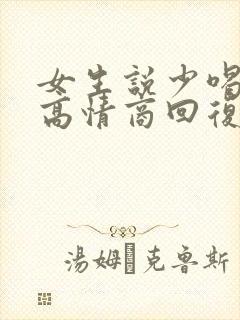 女生説少喝
高情商回復
湯姆·克魯斯